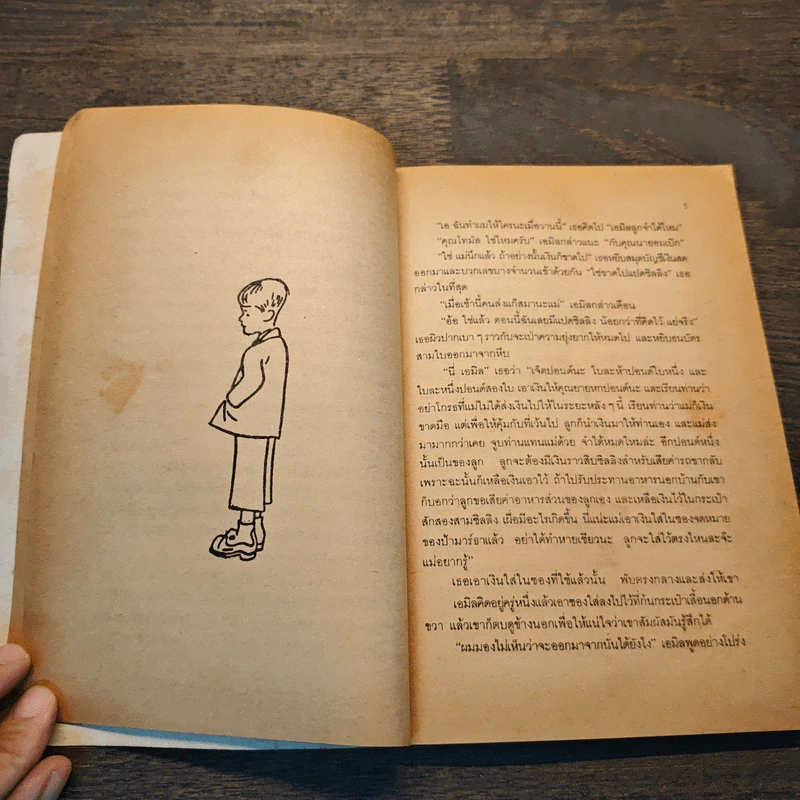 ๕
"เอ ฉันทำผมให้ใครนะเมื่อวานนี้" เธอคิดไป "เอมิลลูกจำได้ไหม"
"คุณโทมัส ใช่ไหมครับ" เอมิลกล่าวแนะ "กับคุณนายฮมเบิก"
"ใช่ แม่นึกแล้ว ถ้าอย่างนั้นเงินก็ขาดไป" เธอหยิบสมุดบัญชีเงินสด
ออกมาและบวกเลขบางจำนวนเข้าด้วยกัน "ใช่ขาดไปแปดชิลลิง" เธอ
กล่าวในที่สุด
"เมื่อเช้านี้คนส่งแก๊สมานะแม่" เอมิลกล่าวเตือน
"อ้อ ใช่แล้ว ตอนนี้ฉันเลยมีแปดชิลลิง น้อยกว่าที่คิดไว้ แย่จริง"
เธอผิวปากเบา ๆ ราวกับจะเป่าความยุ่งยากให้หมดไป และหยิบธนบัตร
สามใบออกมาจากหีบ
"นี่ เอมิล" เธอว่า "เจ็ดปอนด์นะ ใบละห้าปอนด์ใบหนึ่ง และ
ใบละหนึ่งปอนด์สองใบ เอาเงินให้คุณยายหกปอนด์นะ และเรียนท่านว่า
อย่าโกรธที่แม่ไม่ได้ส่งเงินไปให้ในระยะหลัง ๆ นี้ เรียนท่านว่าแม่ก็เงิน
ขาดมือ แต่เพื่อให้คุ้มกับที่เว้นไป ลูกก็นำเงินมาให้ท่านเอง และแม่ส่ง
มามากกว่าเคย จูบท่านแทนแม่ด้วย จำได้หมดไหมล่ะ อีกปอนด์หนึ่ง
นั้นเป็นของลูก ลูกจะต้องมีเงินราวสิบชิลลิงสำหรับเสียค่ารถขากลับ
เพราะฉะนั้นก็เหลือเงินเอาไว้ ถ้าไปรับประทานอาหารนอกบ้านกับเขา
ก็บอกว่าลูกขอเสียค่าอาหารส่วนของลูกเอง และเหลือเงินไว้ในกระเป๋า
สักสองสามชิลลิง เผื่อมีอะไรเกิดขึ้น นี่แน่ะแม่เอาเงินใส่ในซองจดหมาย
ของป้ามาร์ธาแล้ว อย่าได้ทำหายเชียวนะ ลูกจะใส่ไว้ตรงไหนละจ๊ะ
แม่อยากรู้"
เธอเอาเงินใส่ในซองที่ใช้แล้วนั้น พับตรงกลางและส่งให้เขา
เอมิลคิดอยู่ครู่หนึ่งแล้วเอาซองใส่ลงไปไว้ที่ก้นกระเป๋าเสื้อนอกด้าน
ขวา แล้วเขาก็ตบดูข้างนอกเพื่อให้แน่ใจว่าเขาสัมผัสมันรู้สึกได้
"ผมมองไม่เห็นว่าจะออกมาจากนั่นได้ยังไง" เอมิลพูดอย่างโปร่ง